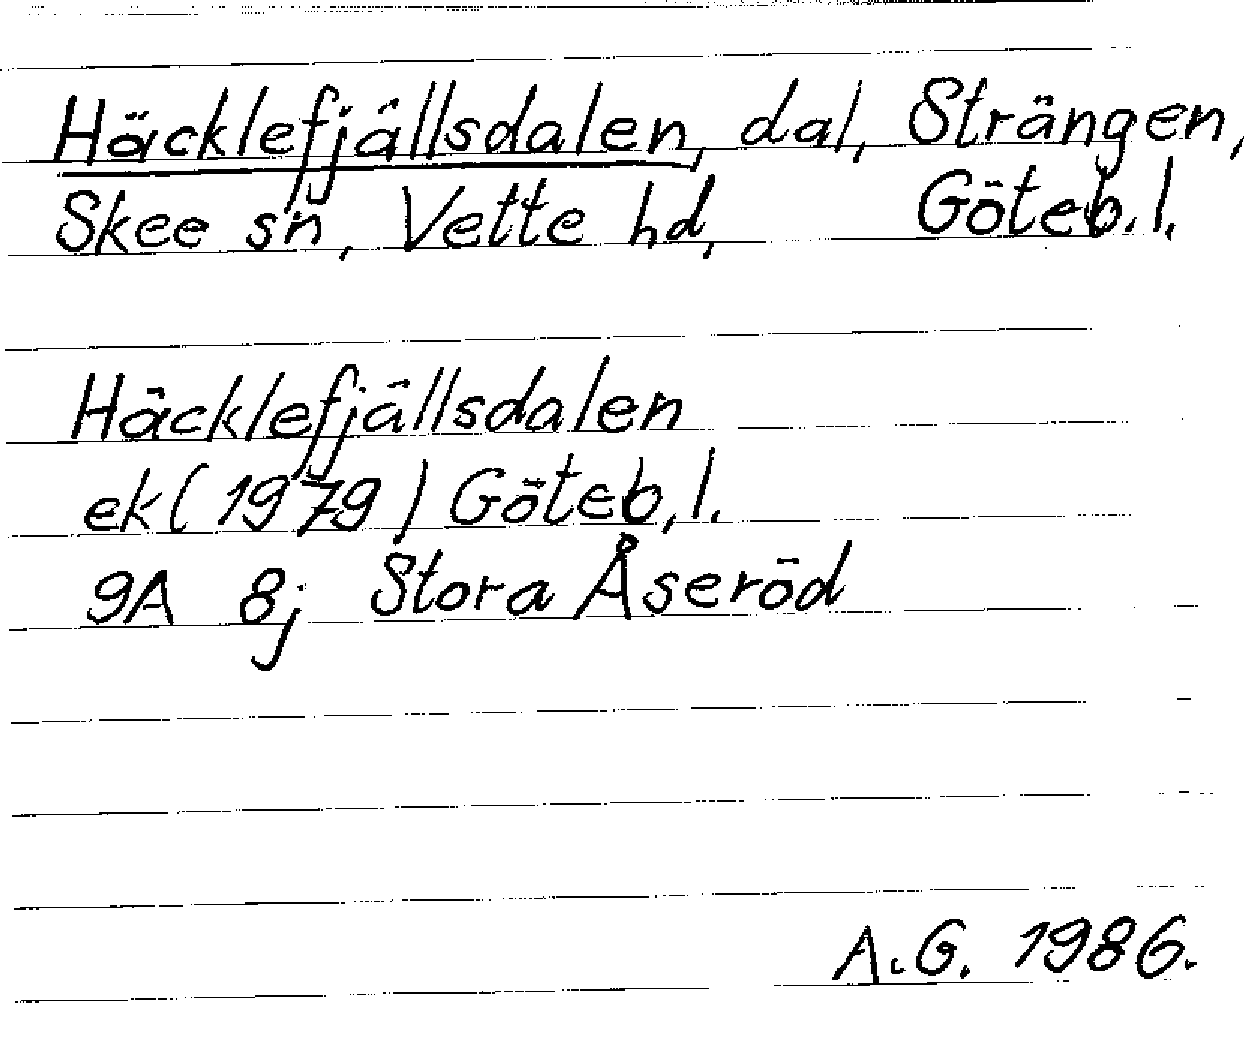 Häcklefjällsdalen, dal, Strängen,
Skee sn, Vette hd, Göteb.l.
Häcklefjällsdalen
ek (1979) Göteb.l.
9A 8j Stora Åseröd
A.G. 1986.